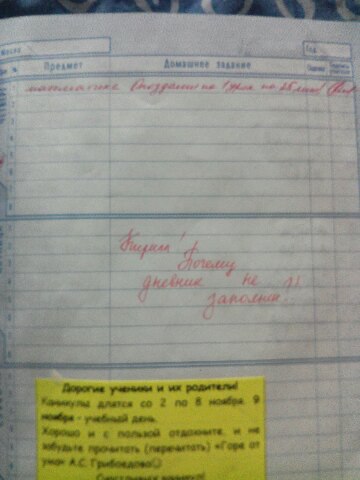 Месяц
Год
Предмет Домашнее задание Оценка
математике Опоздание на 1 урок на 25 мин
Кирилл!
Почему
дневник не
заполнен?!
Дорогие ученики и их родители!
Каникулы длятся со 2 по 8 ноября. 9
ноября - учебный день.
Хорошо и с пользой отдохните, и не
забудьте прочитать (перечитать) «Горе от
ума» А.С. Грибоедова☺
Счастливых каникул!